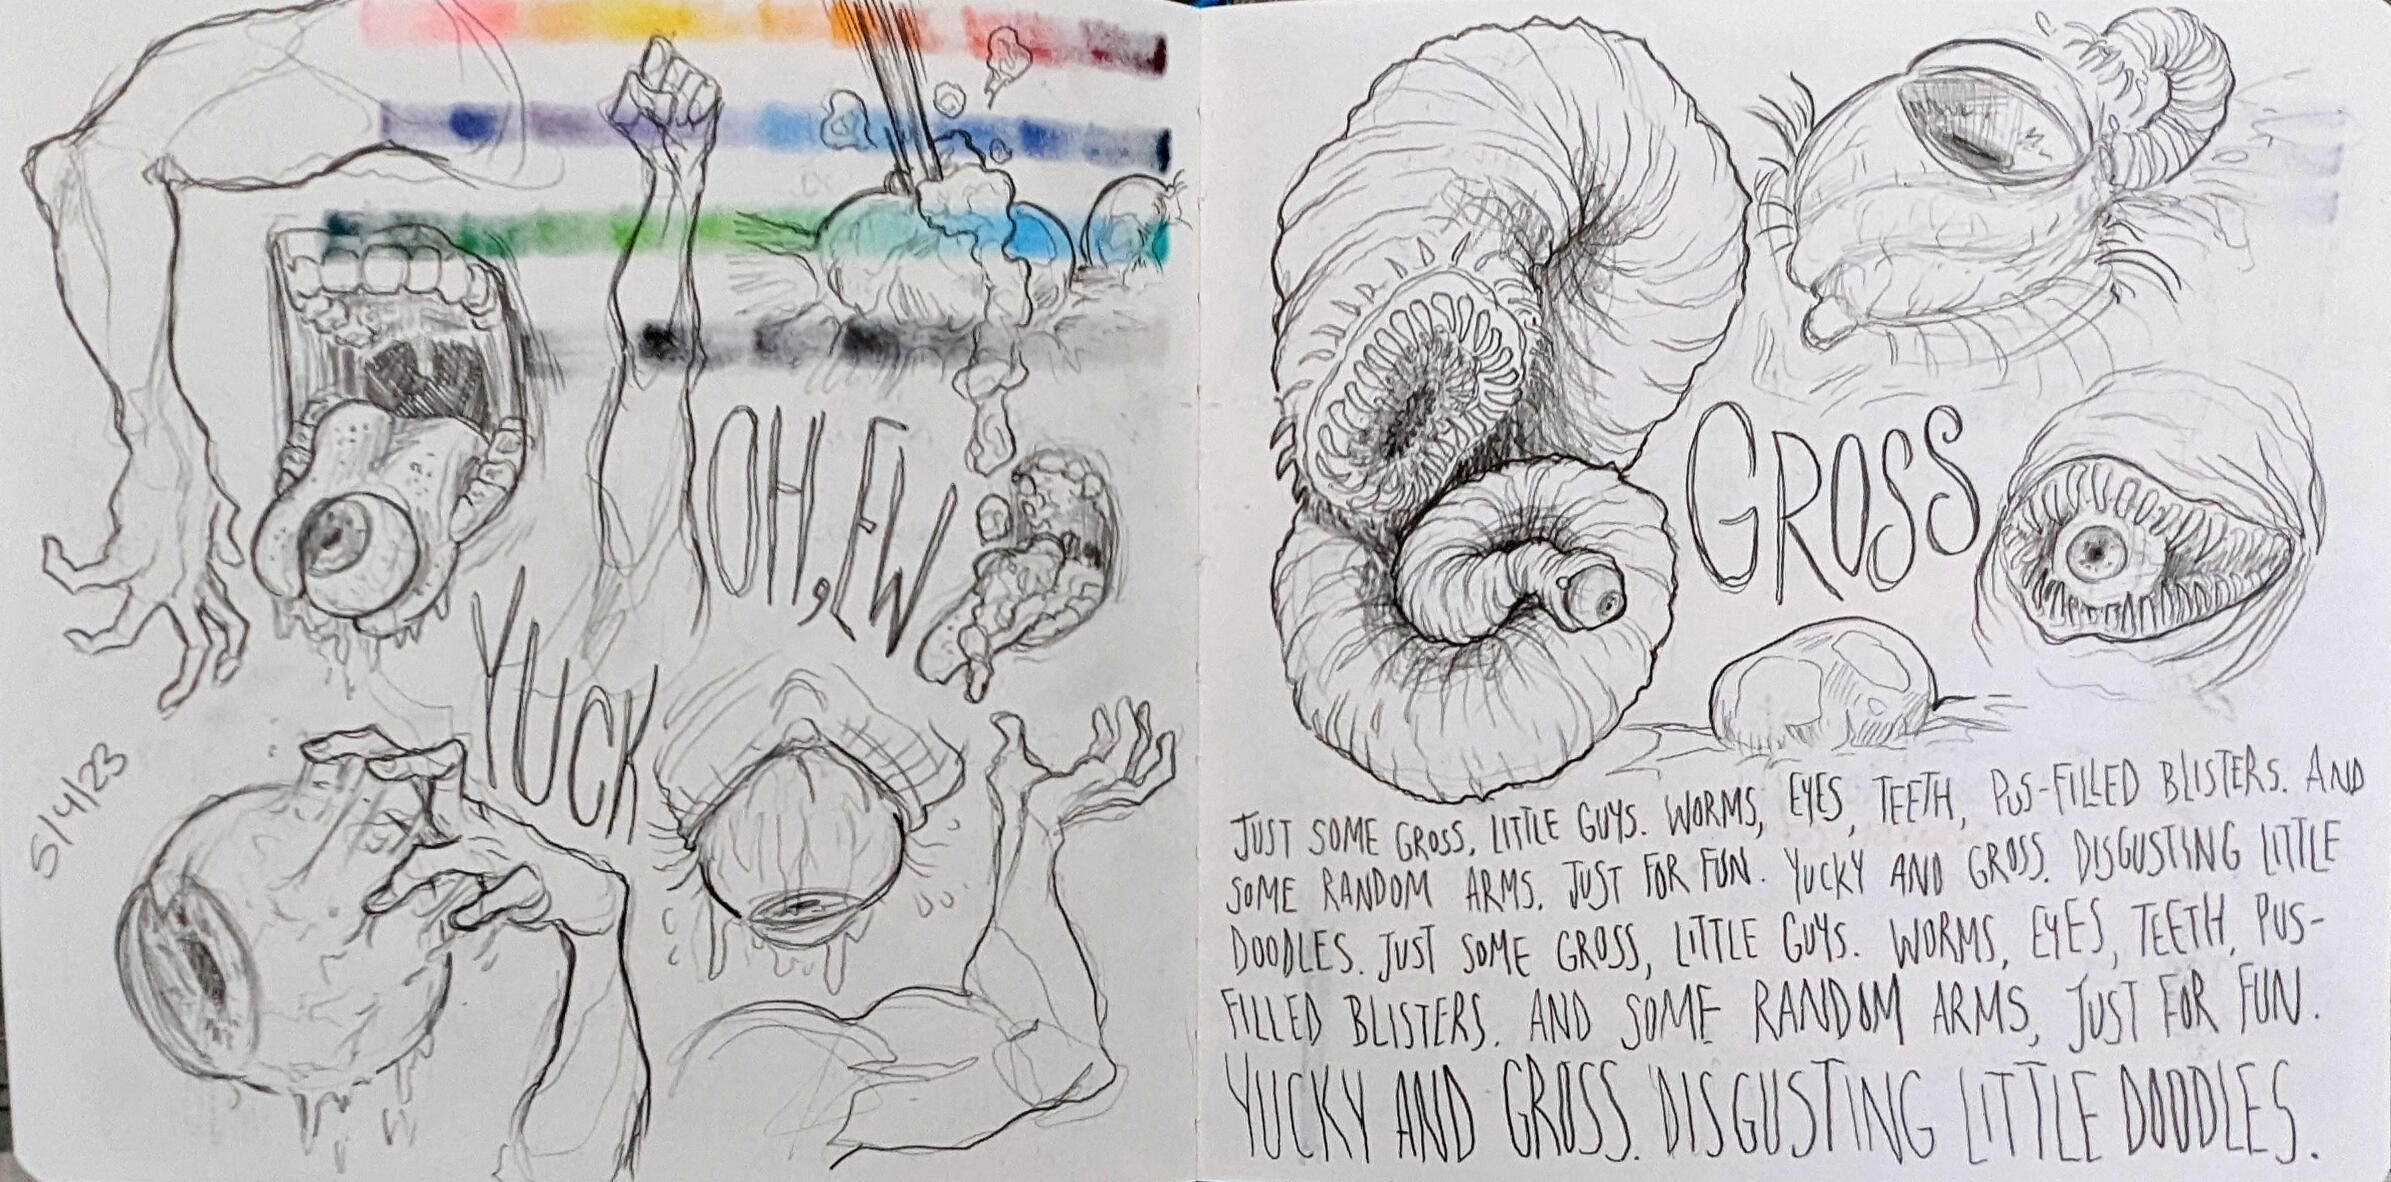 OH, EW
YUCK
5/4/23
GROSS
JUST SOME GROSS, LITTLE GUYS. WORMS, EYES, TEETH, PUS-FILLED BLISTERS. AND
SOME RANDOM ARMS. JUST FOR FUN. YUCKY AND GROSS. DISGUSTING LITTLE
DOODLES. JUST SOME GROSS, LITTLE GUYS. WORMS, EYES, TEETH, PUS-
FILLED BLISTERS. AND SOME RANDOM ARMS, JUST FOR FUN.
YUCKY AND GROSS. DISGUSTING LITTLE DOODLES.